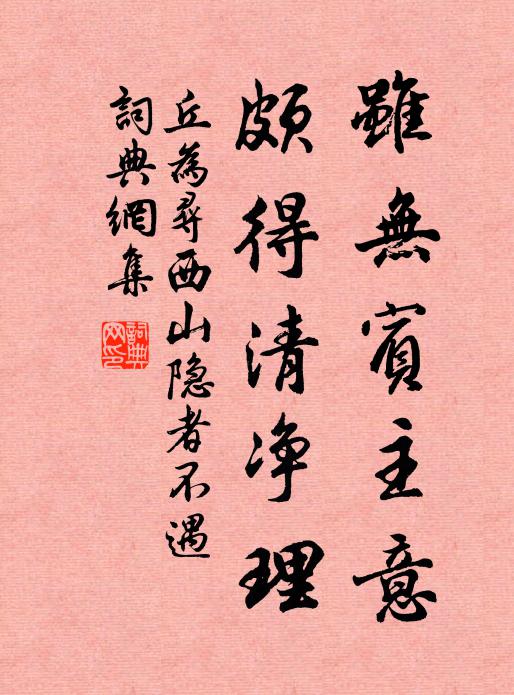 雖無賓主意
頗得清净理
丘為尋西山隐者不遇
詞典網集
詞典网印